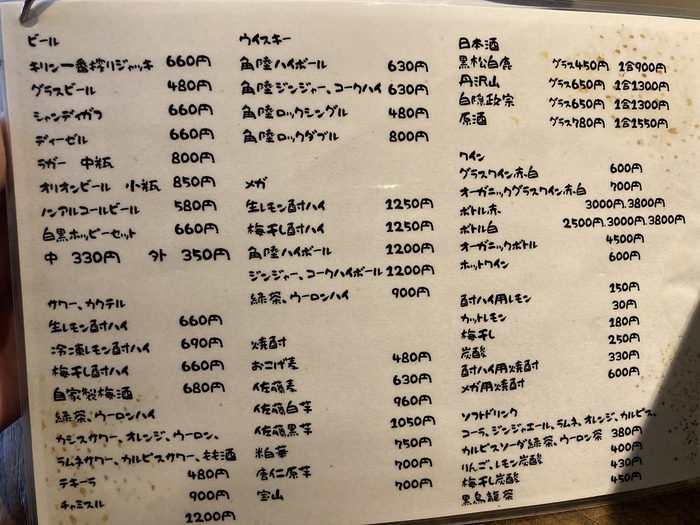 ビール
キリン一番搾りジャッキ 660円
グラスビール 480円
シャンディガフ 660円
ディーゼル 660円
ラガー 中瓶 800円
オリオンビール 小瓶 850円
ノンアルコールビール 580円
白黒ホッピーセット 660円
中 330円 外 350円
サワー、カクテル
生レモン酎ハイ 660円
冷凍レモン酎ハイ 690円
梅干し酎ハイ 660円
自家製梅酒 680円
緑茶、ウーロンハイ
カシスサワー、オレンジ、ウーロン、
ラムネサワー、カルピスサワー、もも酒
テキーラ 480円
チャミスル 900円
1200円
ウイスキー
角陸ハイボール 630円
角陸ジンジャー、コークハイ 630円
角陸ロックシングル 480円
角陸ロックダブル 800円
メガ
生レモン酎ハイ 1250円
梅干し酎ハイ 1250円
角陸ハイボール 1200円
ジンジャー、コークハイボール 1200円
緑茶、ウーロンハイ 900円
焼酎
おこげ麦 480円
佐藤麦 630円
佐藤白芋 960円
佐藤黒芋 1050円
粕華 750円
唐仁原芋 700円
宝山 700円
日本酒
黒松白鹿 グラス450円 1合900円
丹沢山 グラス650円 1合1300円
白隠政宗 グラス650円 1合1300円
原酒 グラス780円 1合1550円
ワイン
グラスワイン赤.白 600円
オーガニックグラスワイン赤.白 700円
ボトル赤. 3000円.3800円
ボトル白 2500円.3000円.3800円
オーガニックボトル 4500円
ホットワイン 600円
酎ハイ用レモン 150円
カットレモン 30円
梅干し 180円
炭酸 250円
酎ハイ用焼酎 330円
メガ用焼酎 600円
ソフトドリンク
コーラ、ジンジャエール、ラムネ、オレンジ、カルピス、
カルピスソーダ緑茶、ウーロン茶 380円
りんご、レモン炭酸 400円
梅干し炭酸 430円
黒烏龍茶 450円